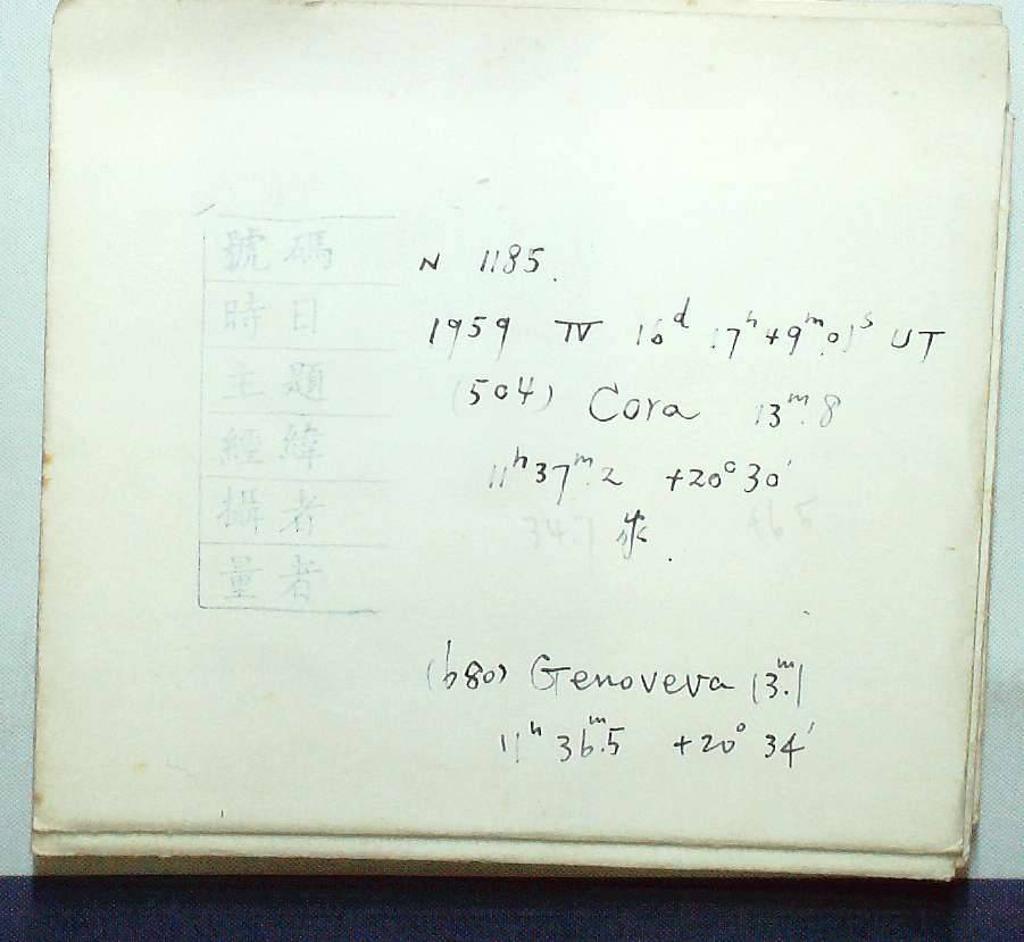 號碼
時日
主題
經緯
攝者
量者
N 1185.
1959 IV 16ᵈ 17ʰ49ᵐ.01ˢ UT
(504) Cora 13ᵐ.8
11ʰ37ᵐ.2 +20°30'
(680) Genoveva 13ᵐ.1
11ʰ 36ᵐ.5 +20° 34'